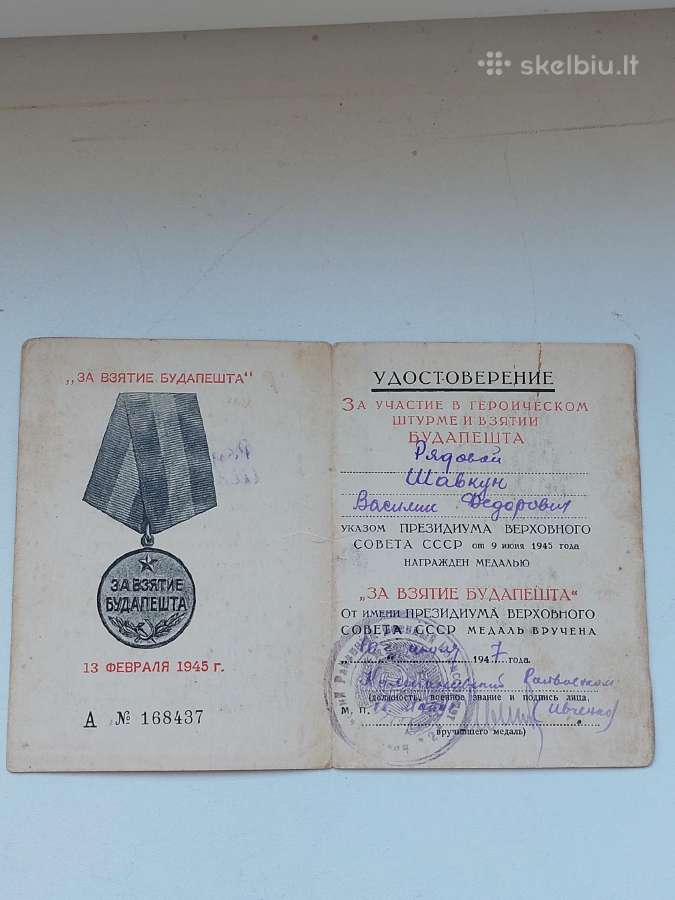 skelbiu.lt
„ЗА ВЗЯТИЕ БУДАПЕШТА"
ЗА ВЗЯТИЕ
БУДАПЕШТА
13 ФЕВРАЛЯ 1945 г.
А № 168437
УДОСТОВЕРЕНИЕ
ЗА УЧАСТИЕ В ГЕРОИЧЕСКОМ
ШТУРМЕ И ВЗЯТИИ
БУДАПЕШТА
Рядовой
Шавкун
Василий Федорович
УКАЗОМ ПРЕЗИДИУМА ВЕРХОВНОГО
СОВЕТА СССР от 9 июня 1945 года
НАГРАЖДЕН МЕДАЛЬЮ
„ЗА ВЗЯТИЕ БУДАПЕШТА"
ОТ ИМЕНИ ПРЕЗИДИУМА ВЕРХОВНОГО
СОВЕТА СССР МЕДАЛЬ ВРУЧЕНА
1947 года.
Райвоенком
(должность, воинское звание и подпись лица,
М. П.
(Ивченко)
вручившего медаль)